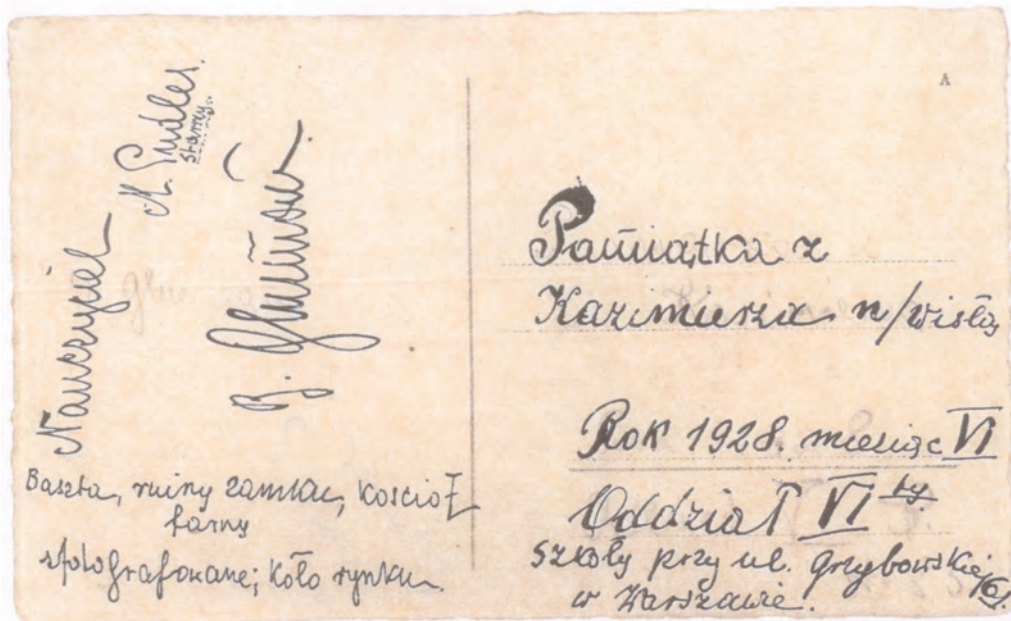 Nauczyciel
M. Pudler.
starszy.
B.
Baszta, ruiny zamku, kościoł
farny
sfotografowane; koło rynku.
A
Pamiątka z
Kazimierza n/wisłą
Rok 1928. miesiąc VI
Oddział VI ty.
szkoły przy ul. Grzybowskiej
w Warszawie.